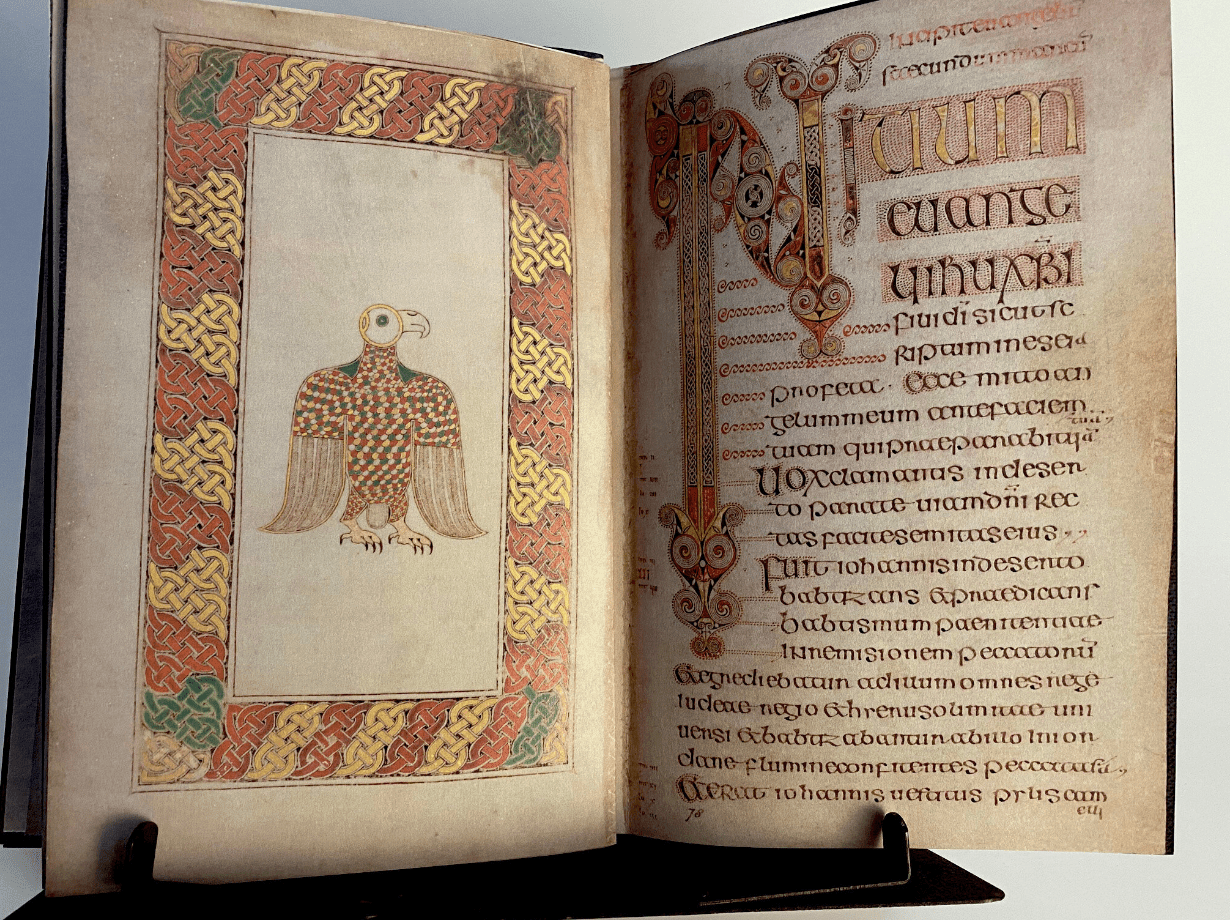 Incipit evangelium
secundum marcum
INITIUM
euange
lii ihu xpi
filii di sicut sc
riptum in esei
profeta. Ecce mitto an
gelum meum ante faciem
tuam qui praeparabit uia
tuam
Uox clamantis in deser
to parate uiam dni rec
tas facite semitas eius
Fuit iohannis in deserto
babtizans & praedicans
babtismum paenitentiae
in remisionem peccatorum
& egrediebatur ad illum omnes rege
iudeae regio & hierusolimitae uni
uersi & babtizabantur ab illo in ior
dane flumine confitentes peccata sua
& erat iohannis uestitus pylis cam
eli
78